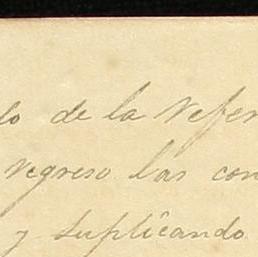 lo de la Refer
regreso las con
y suplicando